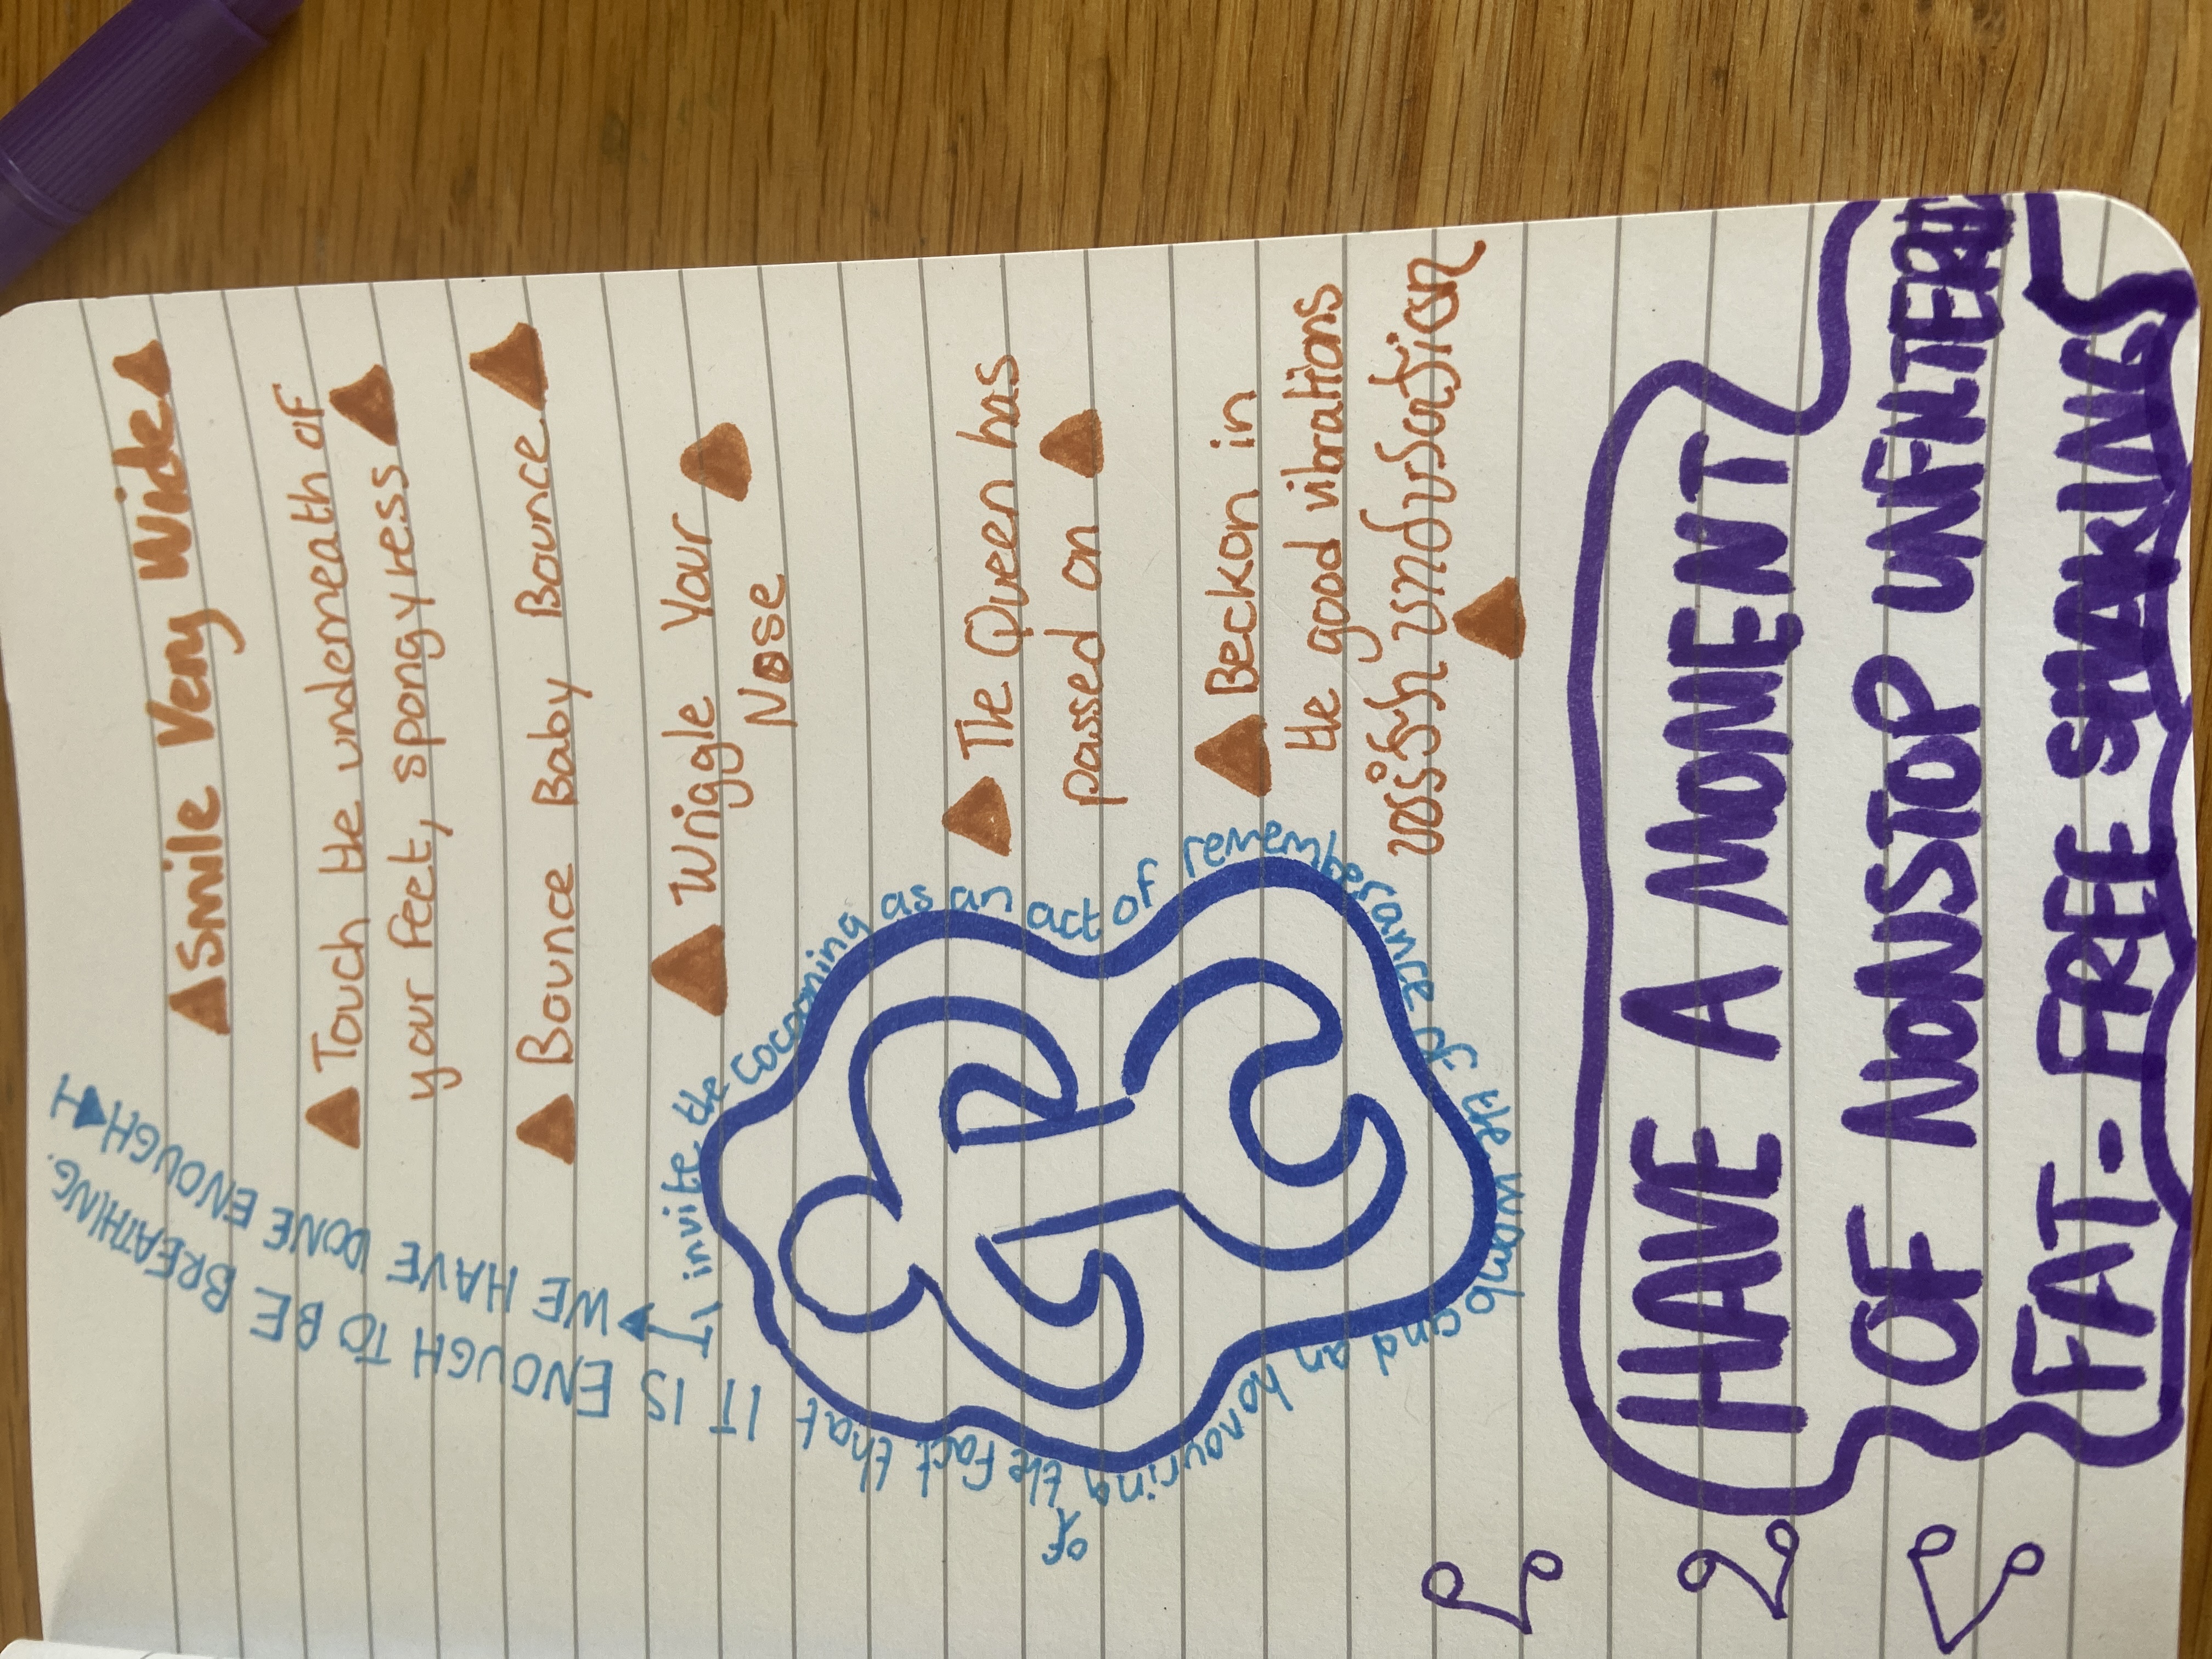 Smile Very Wide
Touch the underneath of
your feet, spongyness
Bounce Baby Bounce
Wriggle Your
Nose
The Queen has
passed on
Beckon in
the good vibrations
with undulation
I invite the cocooning as an act of rememberance of the womb and an honouring of the fact that
IT IS ENOUGH TO BE BREATHING.
WE HAVE DONE ENOUGH
HAVE A MOMENT
OF NONSTOP UNFILTERED
FAT-FREE SHAKING